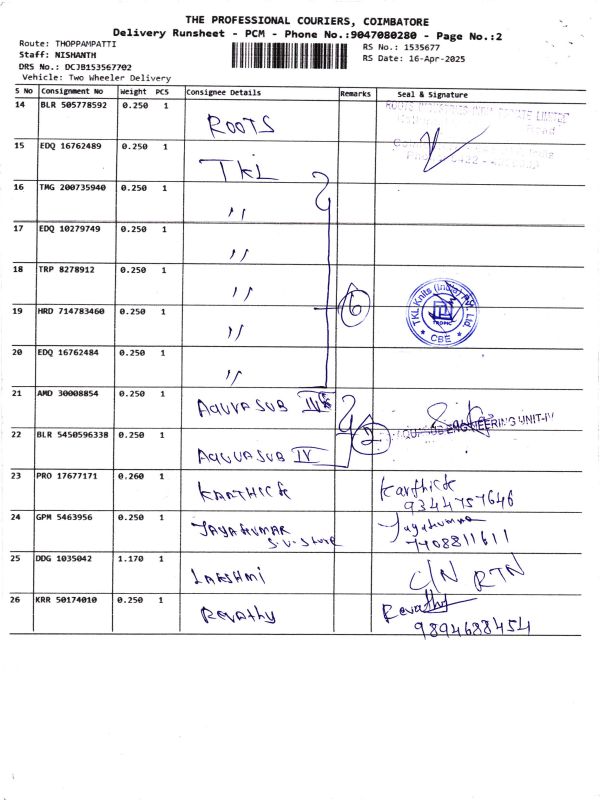 THE PROFESSIONAL COURIERS, COIMBATORE
Delivery Runsheet - PCM - Phone No.:9047080280 - Page No.:2
Route: THOPPAMPATTI
Staff: NISHANTH
DRS No.: DCJB153567702
Vehicle: Two Wheeler Delivery
RS No.: 1535677
RS Date: 16-Apr-2025
S No Consignment No Weight PCS Consignee Details Remarks Seal & Signature
14 BLR 505778592 0.250 1 ROOTS ROOTS INDUSTRIES INDIA PRIVATE LIMITED
15 EDQ 16762489 0.250 1 TKL
16 TMG 200735940 0.250 1 ,,
17 EDQ 10279749 0.250 1 ,,
18 TRP 8278912 0.250 1 ,,
19 HRD 714783460 0.250 1 ,, 6 TKL Knits (India) Pvt. Ltd. TROPIC * CBE *
20 EDQ 16762484 0.250 1 ,,
21 AMD 30008854 0.250 1 AQUVA SUB IV
22 BLR 5450596338 0.250 1 AQUVA SUB IV 2 AQUASUB ENGINEERING UNIT-IV
23 PRO 17677171 0.260 1 KARTHICK Karthick
9344757646
24 GPM 5463956 0.250 1 JAYAKUMAR Jayakumar
S.V.S 7408811611
25 DDG 1035042 1.170 1 LAKSHMI C/N RTN
26 KRR 50174010 0.250 1 Revathy Revathy
9894688454